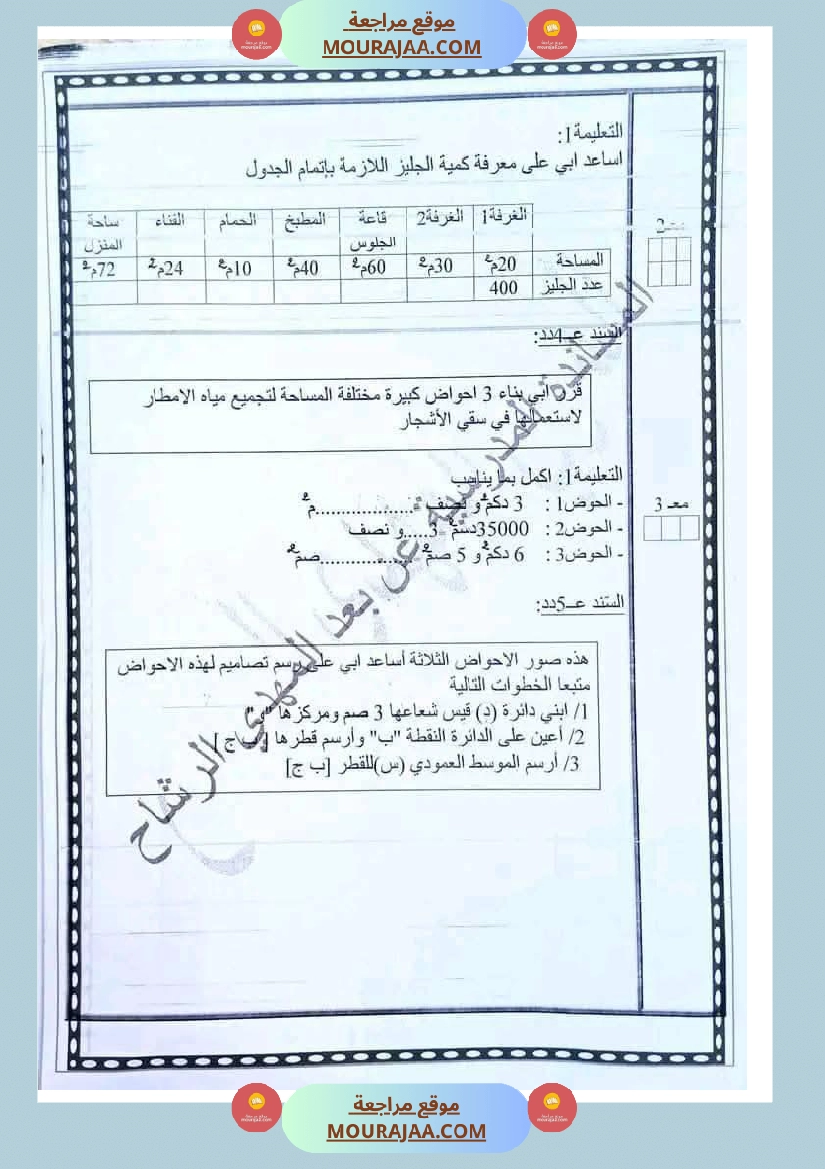 موقع مراجعة
MOURAJAA.COM
التعليمة1:
اساعد ابي على معرفة كمية الجليز اللازمة بإتمام الجدول
الغرفة1 الغرفة2 قاعة الجلوس المطبخ الحمام الفناء ساحة المنزل
المساحة 20م² 30م² 60م² 40م² 10م² 24م² 72م²
عدد الجليز 400
معـ2
السند عــ4دد:
قرر ابي بناء 3 احواض كبيرة مختلفة المساحة لتجميع مياه الامطار
لاستعمالها في سقي الأشجار
التعليمة1: اكمل بما يناسب
- الحوض1 : 3 دكم² و نصف =..................م²
- الحوض2: 35000دسم² 3.....و نصف
- الحوض3: 6 دكم² و 5 صم² ..................صم²
معـ 3
السّند عــ5دد:
هذه صور الاحواض الثلاثة أساعد ابي على رسم تصاميم لهذه الاحواض
متبعا الخطوات التالية
1/ ابني دائرة (د) قيس شعاعها 3 صم ومركزها "و"
2/ أعين على الدائرة النقطة "ب" وأرسم قطرها [ب ج]
3/ أرسم الموسط العمودي (س)للقطر [ب ج]
المساندة المدرسية عن بعد المهدي الرشاح
موقع مراجعة
MOURAJAA.COM